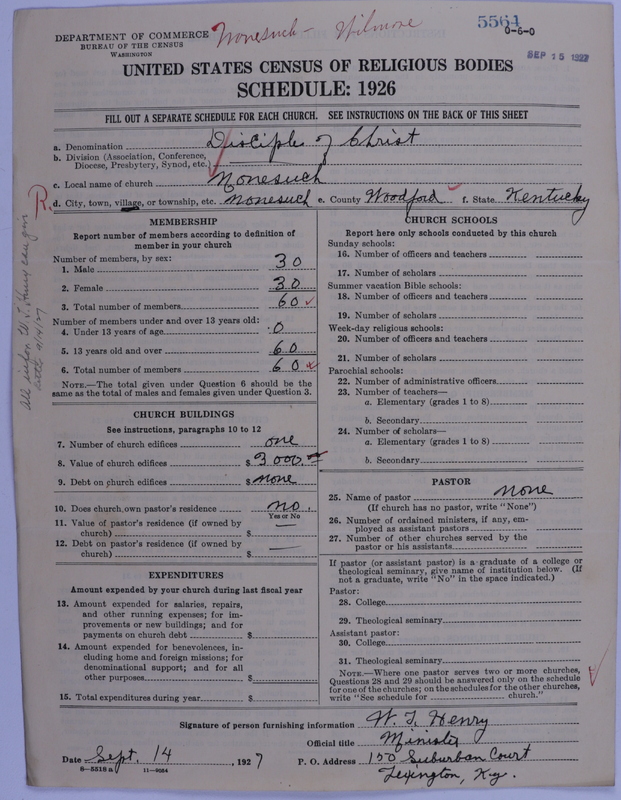 DEPARTMENT OF COMMERCE
BUREAU OF THE CENSUS
WASHINGTON
Nonesuch - Wilmore
5564
0-6-0
SEP 15 1927
UNITED STATES CENSUS OF RELIGIOUS BODIES
SCHEDULE: 1926
FILL OUT A SEPARATE SCHEDULE FOR EACH CHURCH. SEE INSTRUCTIONS ON THE BACK OF THIS SHEET
a. Denomination Disciples of Christ
b. Division (Association, Conference, Diocese, Presbytery, Synod, etc.)
c. Local name of church Nonesuch
R. d. City, town, village, or township, etc. Nonesuch e. County Woodford f. State Kentucky
MEMBERSHIP
Report number of members according to definition of
member in your church
Number of members, by sex:
1. Male 30
2. Female 30
3. Total number of members 60
Number of members under and over 13 years old:
4. Under 13 years of age 0
5. 13 years old and over 60
6. Total number of members 60
NOTE.—The total given under Question 6 should be the
same as the total of males and females given under Question 3.
CHURCH BUILDINGS
See instructions, paragraphs 10 to 12
7. Number of church edifices one
8. Value of church edifices $3000.00
9. Debt on church edifices $none
10. Does church own pastor's residence no.
Yes or No
11. Value of pastor's residence (if owned by
church) $ —
12. Debt on pastor's residence (if owned by
church) $ —
EXPENDITURES
Amount expended by your church during last fiscal year
13. Amount expended for salaries, repairs,
and other running expenses; for im-
provements or new buildings; and for
payments on church debt $
14. Amount expended for benevolences, in-
cluding home and foreign missions; for
denominational support; and for all
other purposes $
15. Total expenditures during year $
CHURCH SCHOOLS
Report here only schools conducted by this church
Sunday schools:
16. Number of officers and teachers
17. Number of scholars
Summer vacation Bible schools:
18. Number of officers and teachers
19. Number of scholars
Week-day religious schools:
20. Number of officers and teachers
21. Number of scholars
Parochial schools:
22. Number of administrative officers
23. Number of teachers—
a. Elementary (grades 1 to 8)
b. Secondary
24. Number of scholars—
a. Elementary (grades 1 to 8)
b. Secondary
PASTOR
25. Name of pastor none
(If church has no pastor, write "None")
26. Number of ordained ministers, if any, em-
ployed as assistant pastors
27. Number of other churches served by the
pastor or his assistants
If pastor (or assistant pastor) is a graduate of a college or
theological seminary, give name of institution below. (If
not a graduate, write "No" in the space indicated.)
Pastor:
28. College
29. Theological seminary
Assistant pastor:
30. College
31. Theological seminary
NOTE.—Where one pastor serves two or more churches,
Questions 28 and 29 should be answered only on the schedule
for one of the churches; on the schedules for the other churches,
write "See schedule for church."
Signature of person furnishing information W. T. Henry
Official title Minister
Date Sept. 14, 1927 P. O. Address 150 Suburban Court
8-5518 a 11-9054 Lexington, Ky.